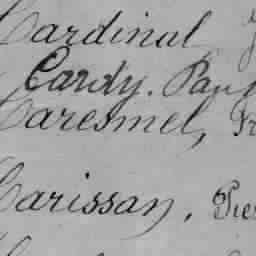 Cardinal
Cardy. Paul
Caresmel, Fr
Carissan, Pie